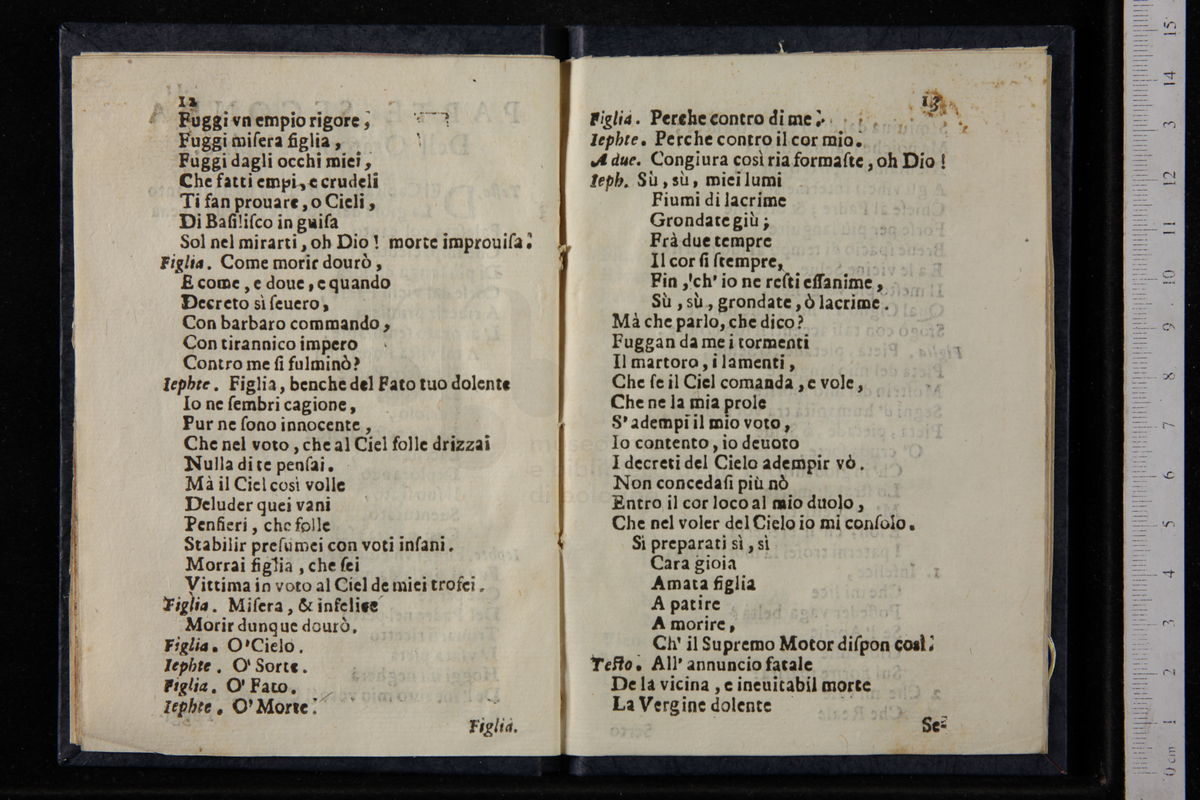 12
Fuggi vn empio rigore;
Fuggi miſera figlia,
Fuggi dagli occhi miei,
Che fatti empi, e crudeli
Ti fan prouare, o Cieli,
Di Baſiliſco in guiſa
Sol nel mirarti, oh Dio! morte improuiſa.
Figlia. Come morir dourò,
E come, e doue, e quando
Decreto sì ſeuero,
Con barbaro commando,
Con tirannico impero
Contro me ſi fulminò?
Iephte. Figlia, benche del Fato tuo dolente
Io ne ſembri cagione,
Pur ne ſono innocente,
Che nel voto, che al Ciel folle drizzai
Nulla di te penſai.
Mà il Ciel così volle
Deluder quei vani
Penſieri, che folle
Stabilir preſumei con voti inſani.
Morrai figlia, che ſei
Vittima in voto al Ciel de miei trofei.
Figlia. Miſera, & infelice
Morir dunque dourò.
Figlia. O'Cielo.
Iephte. O' Sorte.
Figlia. O' Fato.
Iephte. O'Morte.
Figlia.
13
Figlia. Perche contro di me.
Iephte. Perche contro il cor mio.
A due. Congiura così ria formaſte, oh Dio!
Ieph. Sù, sù, miei lumi
Fiumi di lacrime
Grondate giù;
Frà due tempre
Il cor ſi ſtempre,
Fin, ch' io ne reſti eſſanime,
Sù, sù, grondate, ò lacrime.
Mà che parlo, che dico?
Fuggan da me i tormenti
Il martoro, i lamenti,
Che ſe il Ciel comanda, e vole,
Che ne la mia prole
S' adempi il mio voto,
Io contento, io deuoto
I decreti del Cielo adempir vò.
Non concedaſi più nò
Entro il cor loco al mio duolo,
Che nel voler del Cielo io mi conſolo.
Si preparati sì, sì
Cara gioia
Amata figlia
A patire
A morire,
Ch' il Supremo Motor diſpon così.
Teſto. All' annuncio fatale
De la vicina, e ineuitabil morte
La Vergine dolente
Se-